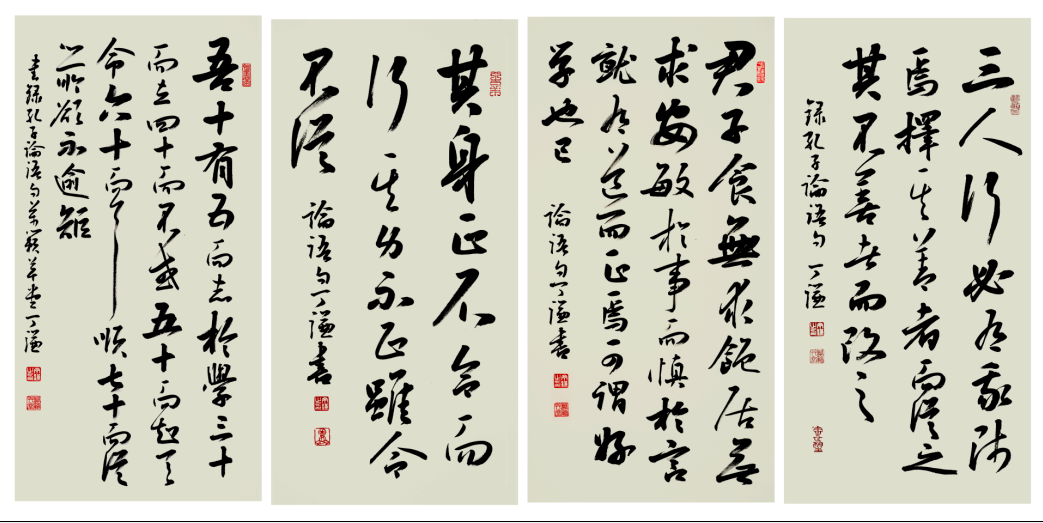 三人行必有我師
焉擇其善者而從之
其不善者而改之
錄孔子論語句 丁謙
君子食無求飽居無
求安敏於事而慎於言
就有道而正焉可謂好
學也已
論語句丁謙書
其身正不令而
行其身不正雖令
不從
論語句丁謙書
吾十有五而志於學三十
而立四十而不惑五十而知天
命六十而耳順七十而從
心所欲不逾矩
書錄孔子論語句 草堂丁謙